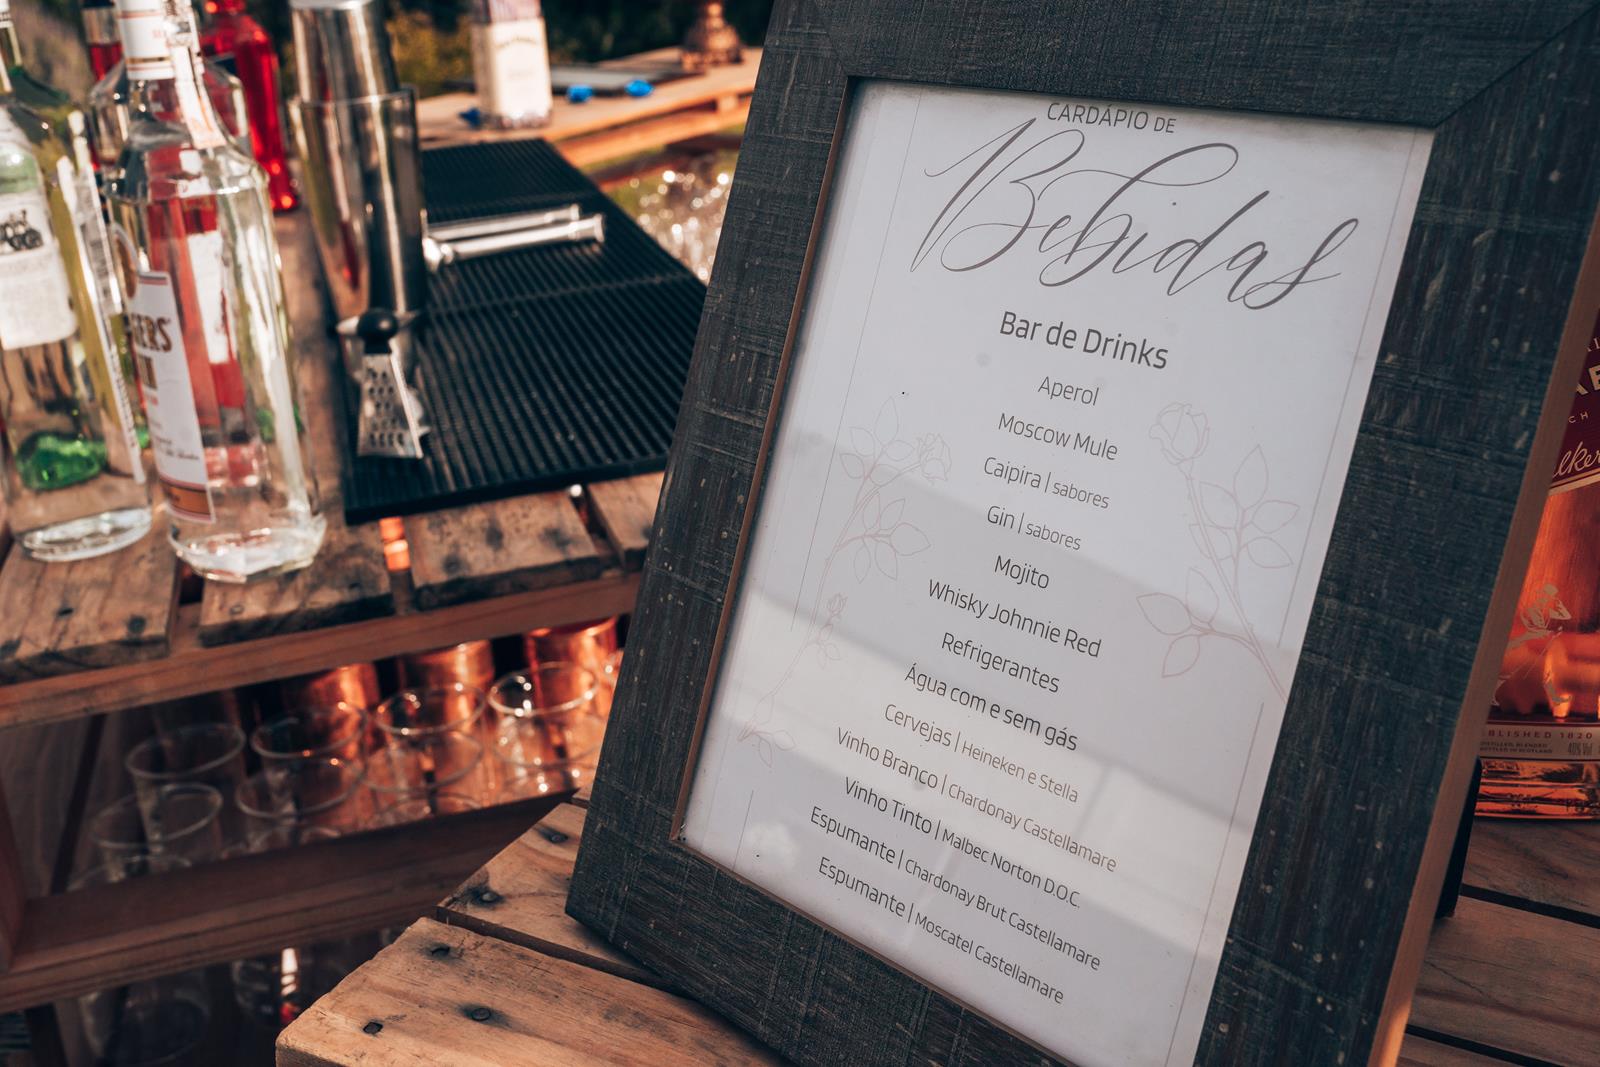 CARDÁPIO DE
Bebidas
Bar de Drinks
Aperol
Moscow Mule
Caipira | sabores
Gin | sabores
Mojito
Whisky Johnnie Red
Refrigerantes
Água com e sem gás
Cervejas | Heineken e Stella
Vinho Branco | Chardonay Castellamare
Vinho Tinto | Malbec Norton D.O.C.
Espumante | Chardonay Brut Castellamare
Espumante | Moscatel Castellamare
ERS
lker
BLISHED 1820
DISTILLED, BLENDED
BOTTLED IN SCOTLAND
40% Vol